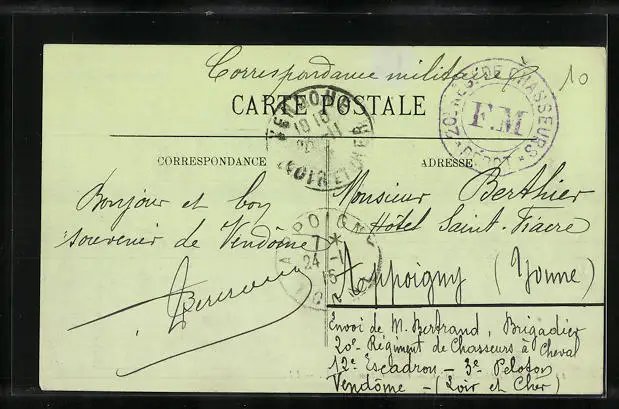 Correspondance militaire
10
CARTE POSTALE
VENDOME
LOIR ET CHER
20E REG. DE CHASSEURS
F.M
DEPOT
CORRESPONDANCE
ADRESSE
Bonjour et bon
souvenir de Vendôme
Monsieur Berthier
Hôtel Saint-Fiacre
Appoigny (Yonne)
APPOIGNY
7
24
Envoi de M. Bertrand, Brigadier
20e Régiment de Chasseurs à cheval
12e Escadron – 3e Peloton
Vendôme – (Loir et Cher)